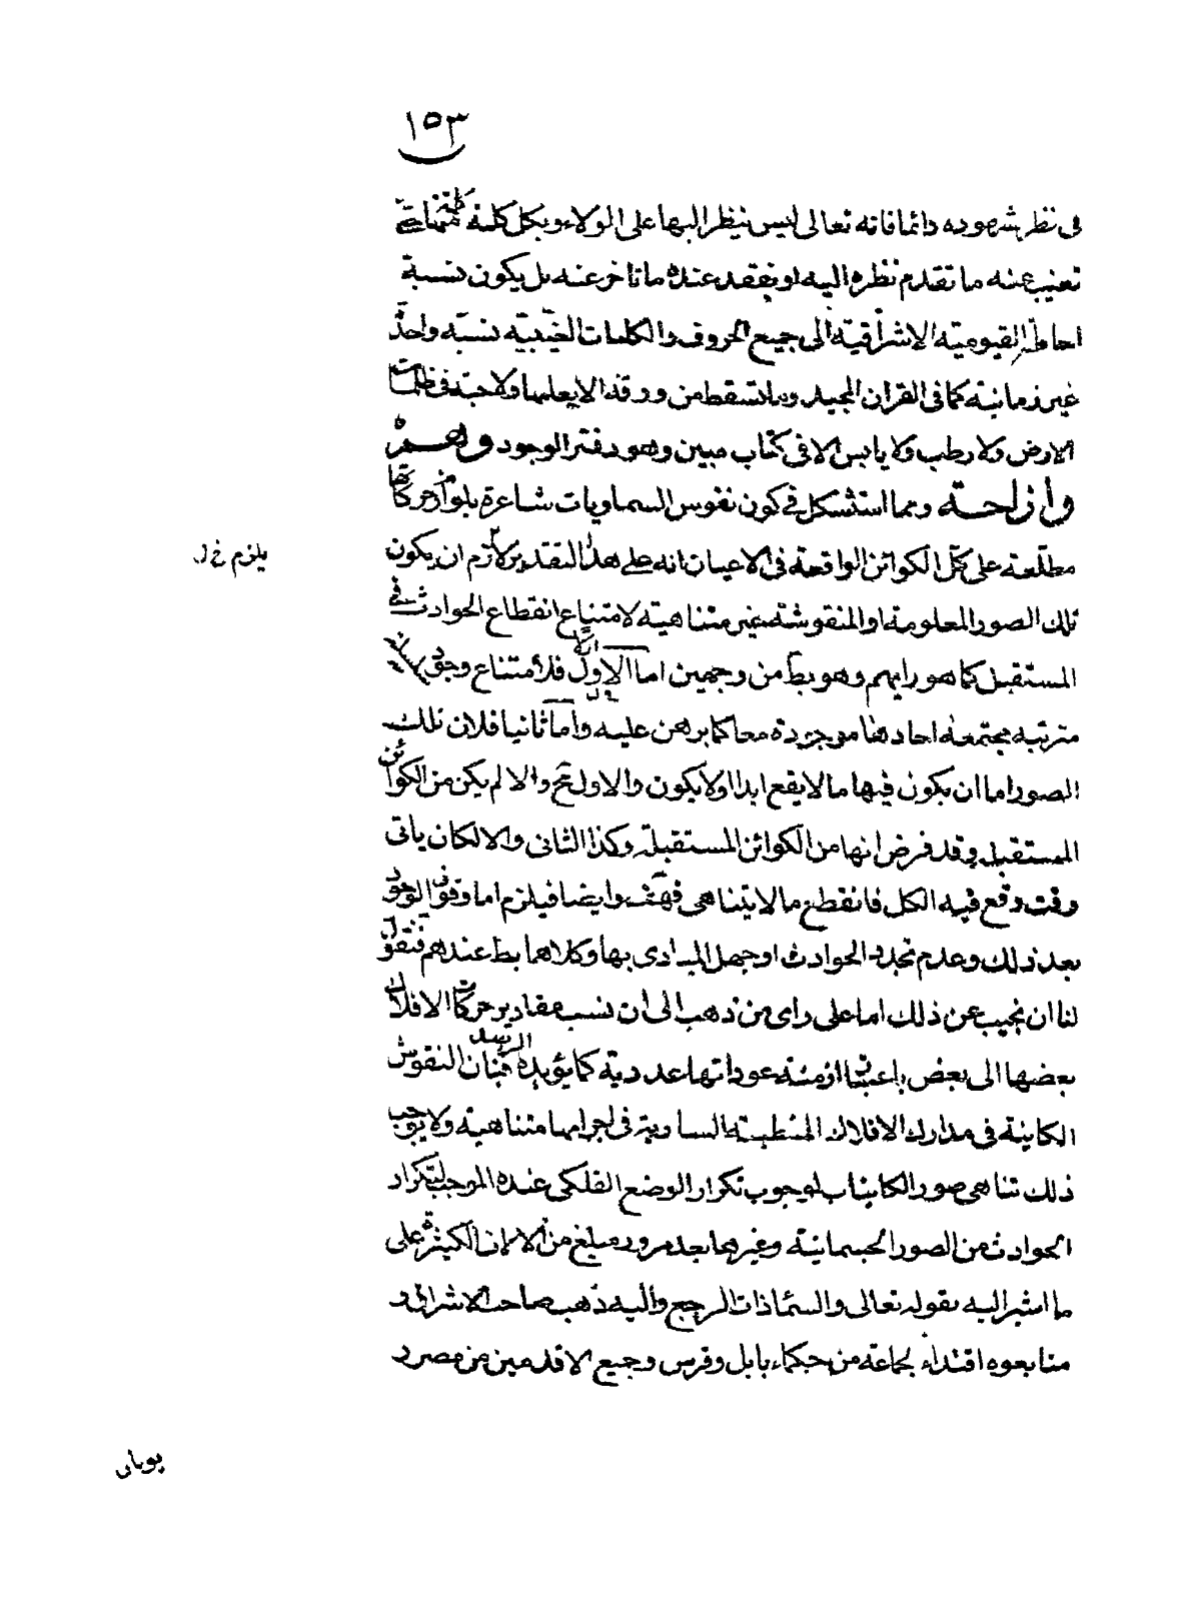 ١٥٣
فى نظر شهوده دائما فانه تعالى ليس ينظر اليها على الولاء وبكل كلمة كلمة
تغيب عنه ما تقدم نظره اليه او يفقد عنده ما تاخر عنه بل يكون نسبة
احاطة القيومية الاشراقية الى جميع الحروف والكلمات الغيبية نسبة واحدة
غير زمانية كما فى القران المجيد وما تسقط من ورقة الا يعلمها ولا حبة فى ظلمات
الارض ولا رطب ولا يابس الا فى كتاب مبين وهو دفتر الوجود وهم
وازاحة ومما استشكل فى كون نفوس السماويات شاعرة بلوازم حركاتها
مطلعة على كل الكوائن الواقعة فى الاعيان انه على هذا التقدير لازم ان يكون
يلزم خ ل
تلك الصور المعلومة او المنقوشة غير متناهية لامتناع انقطاع الحوادث فى
المستقبل كما هو رايهم وهو بط من وجهين اما الاول فلامتناع وجود
مترتبة مجتمعة احادها موجودة معا كما برهن عليه واما ثانيا فلان تلك
الصور اما ان يكون فيها ما لا يقع ابدا او لا يكون والاول مح والا لم يكن من الكوائن
المستقبلة وقد فرض انها من الكوائن المستقبلة وكذا الثانى والا لكان ياتى
وقت وقع فيه الكل فانقطع ما لا يتناهى فهف وايضا فيلزم اما وقوف الوجود
بعد ذلك وعدم تجدد الحوادث او جهل المبادى بها وكلاهما بط عندهم فنقول
لنا ان نجيب عن ذلك اما على راى من ذهب الى ان نسب مقادير حركات الافلاك
بعضها الى بعض باعتبار ازمنة عوداتها عددية كما يؤيده الرصد فبان النقوش
الكاينة فى مدارك الافلاك المنطبعة السماوية فى اجرامها متناهية ولا يوجب
ذلك تناهى صور الكاينات لوجوب تكرار الوضع الفلكى عنده الموجب لتكرار
الحوادث من الصور الجسمانية وغيرها بعد مرور مبلغ من الازمان الكثيرة على
ما اشير اليه بقوله تعالى والسماء ذات الرجع واليه ذهب صاحب الاشراق و
متابعوه اقتداء لجماعة من حكماء بابل وفرس وجميع الاقدمين من مصر و